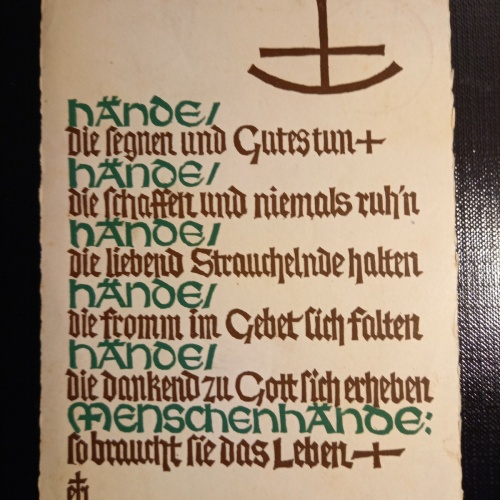 HÄNDE/
die segnen und Gutes tun +
HÄNDE/
die schaffen und niemals ruh'n
HÄNDE/
die liebend Strauchelnde halten
HÄNDE/
die fromm im Gebet sich falten
HÄNDE/
die dankend zu Gott sich erheben
MENSCHENHÄNDE:
so braucht sie das Leben +